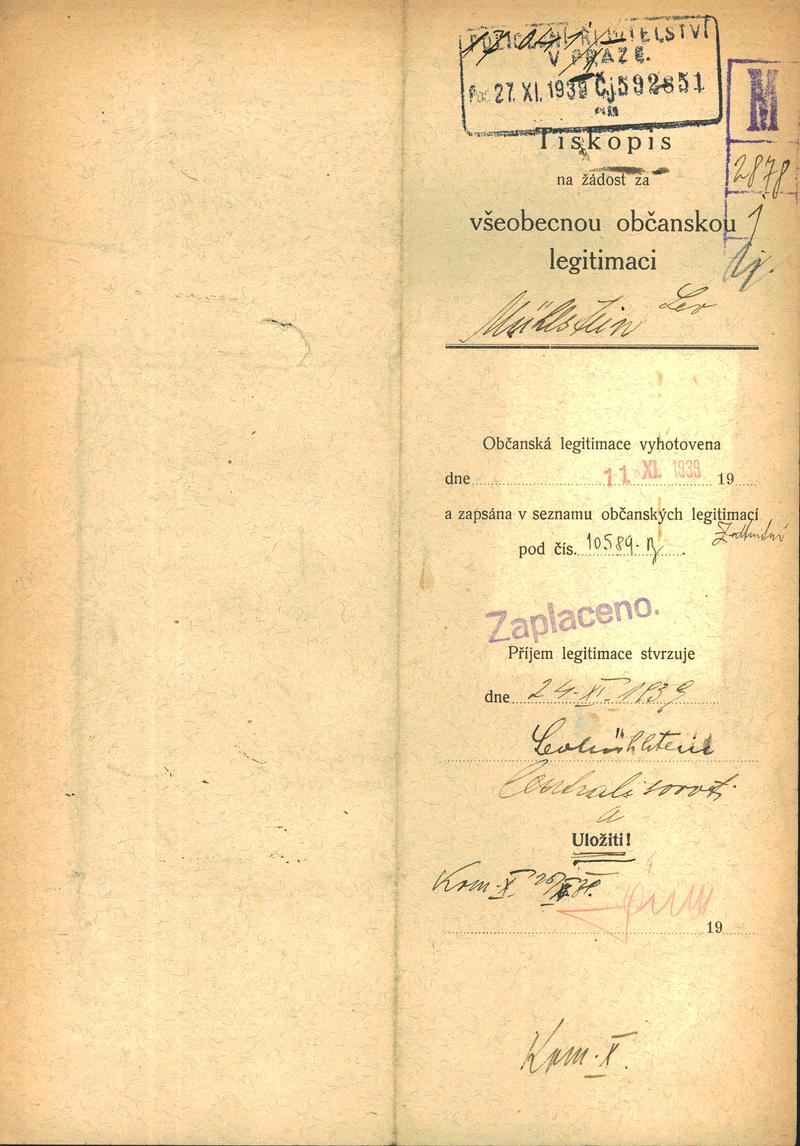 POLICEJNÍ ŘEDITELSTVÍ
V PRAZE.
27. XI. 1939 Čj 592851
M
Tiskopis
2878
na žádost za
všeobecnou občanskou
1
legitimaci
Mühlstein Lev
Občanská legitimace vyhotovena
dne 11. XI. 1939 19
a zapsána v seznamu občanských legitimací
pod čís. 10589
Zaplaceno.
Příjem legitimace stvrzuje
dne 24. XI. 1939
Centralisovati
a
Uložiti!
Kom. X.
19
Kom. X.